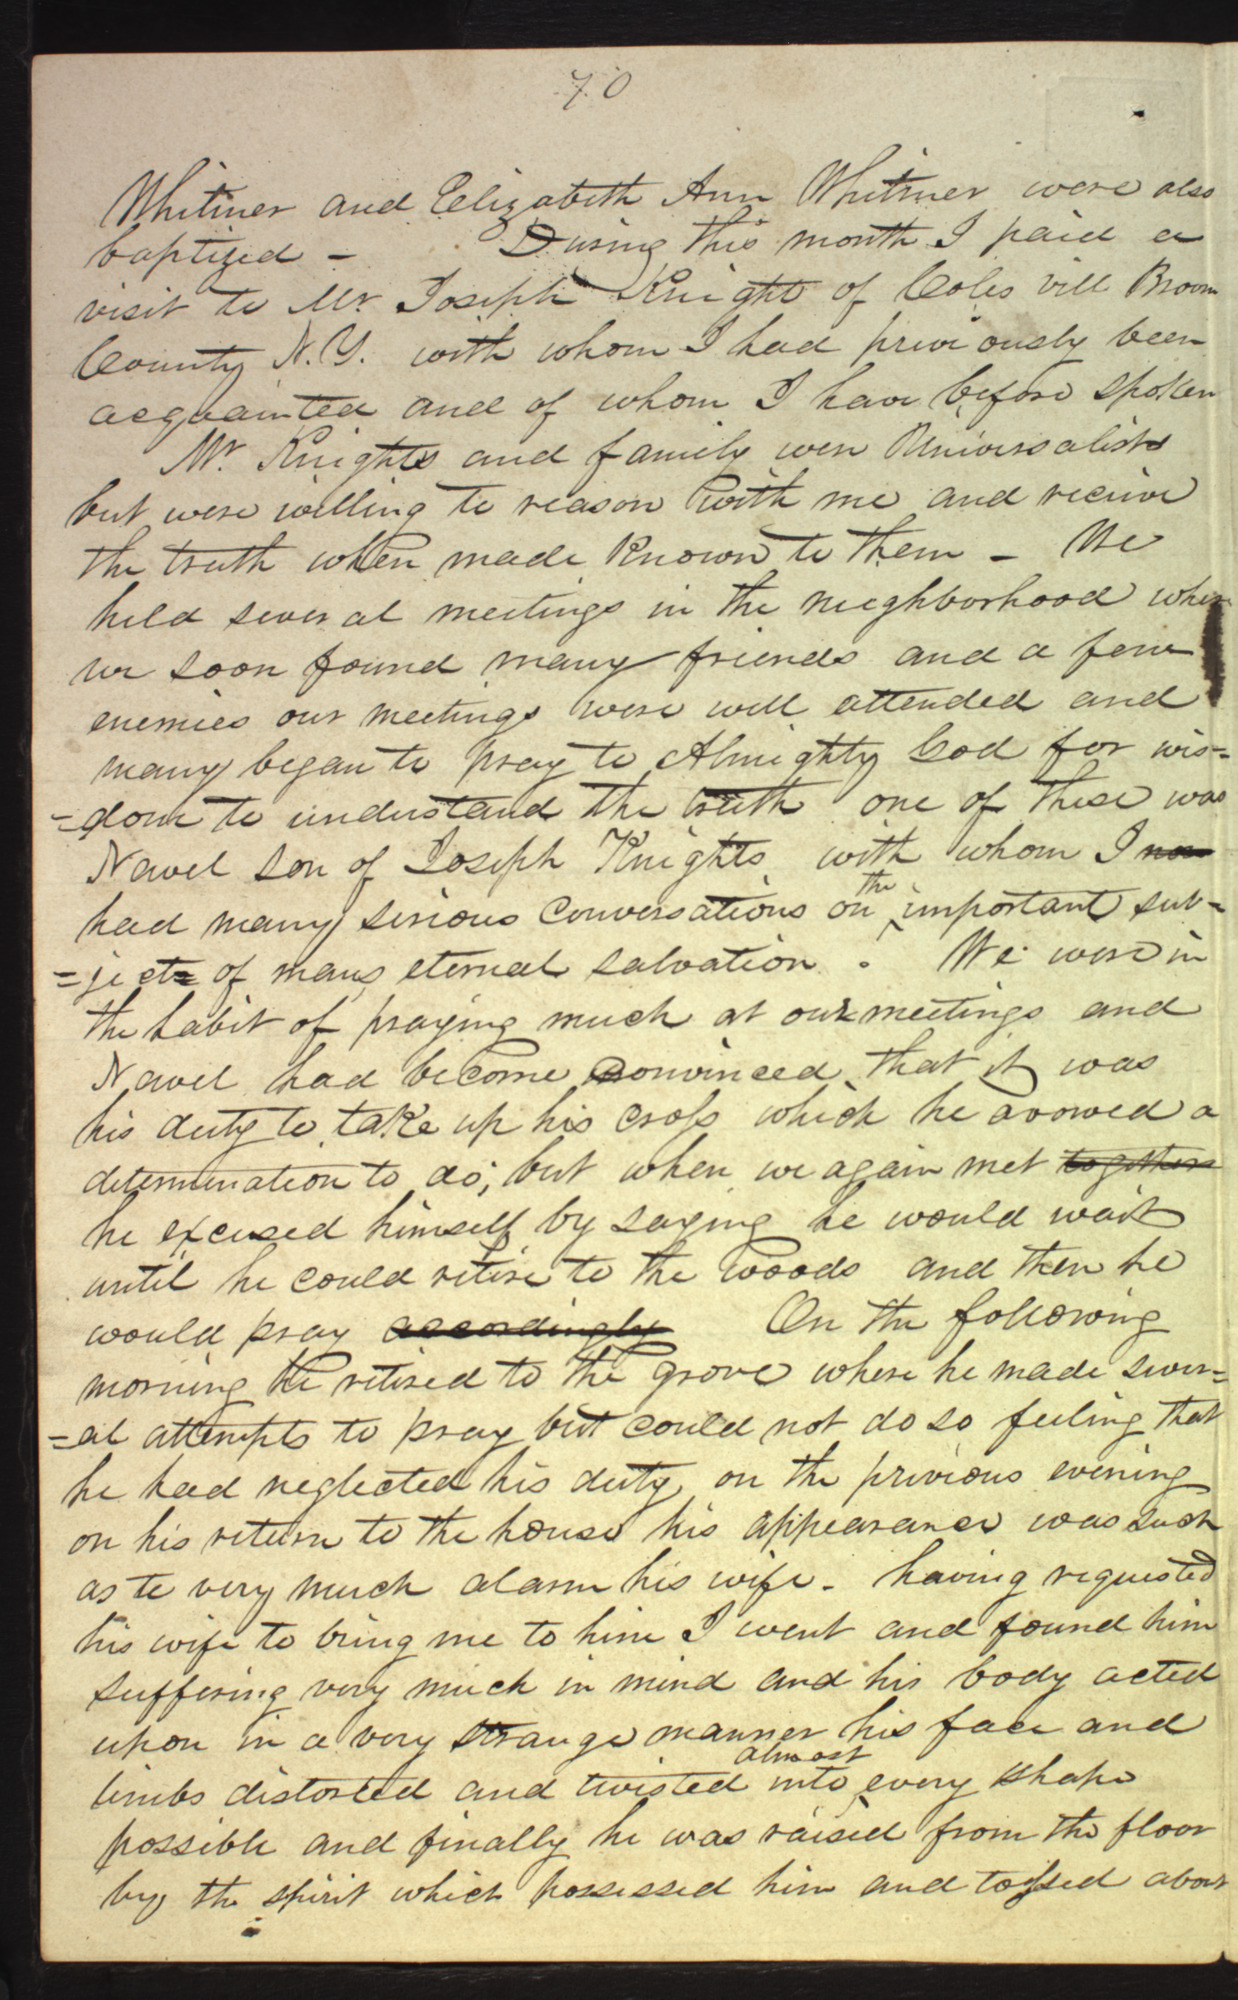 70
Whitmer and Elizabeth Ann Whitmer were also
baptized – During this month I paid a
visit to Mr. Joseph Knight of Colesvill Broom
County N.Y. with whom I had previously been
acquainted and of whom I have before spoken
Mr. Knights and family were Universalists
but were willing to reason with me and recieve
the truth when made known to them – We
held several meetings in the neighborhood where
we soon found many friends and a few
enemies our meetings were well attended and
many began to pray to Almighty God for wis=
=dom to understand the truth one of these was
Navel son of Joseph Knights with whom I
had many serious conversations on the important sub=
=ject of mans eternal salvation. We were in
the habit of praying much at our meetings and
Navel had become convinced that it was
his duty to take up his cross which he avowed a
determination to do; but when we again met together
he excused himself by saying he would wait
until he could retire to the woods and then he
would pray accordingly On the following
morning he retired to the grove where he made sever=
=al attempts to pray but could not do so feeling that
he had neglected his duty on the previous evening
on his return to the house his appearance was such
as to very much alarm his wife – having requested
his wife to bring me to him I went and found him
suffering very much in mind and his body acted
upon in a very strange manner his face and
limbs distorted and twisted into almost every shape
possible and finally he was raised from the floor
by the spirit which possessed him and tossed about